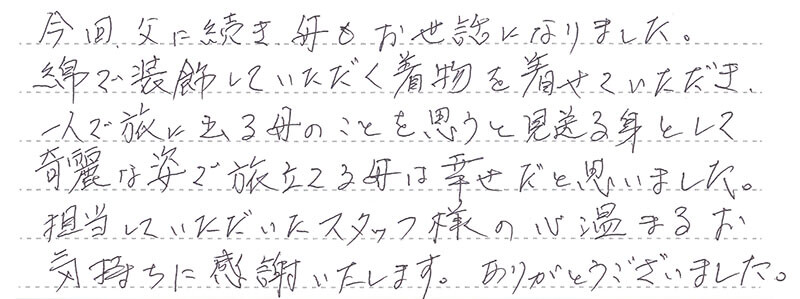 今回、父に続き、母もお世話になりました。
綿で装飾していただく着物を着せていただき、
一人で旅に出る母のことを思うと見送る身として
奇麗な姿で旅立てる母は幸せだと思いました。
担当していただいたスタッフ様の心温まるお
気持ちに感謝いたします。ありがとうございました。